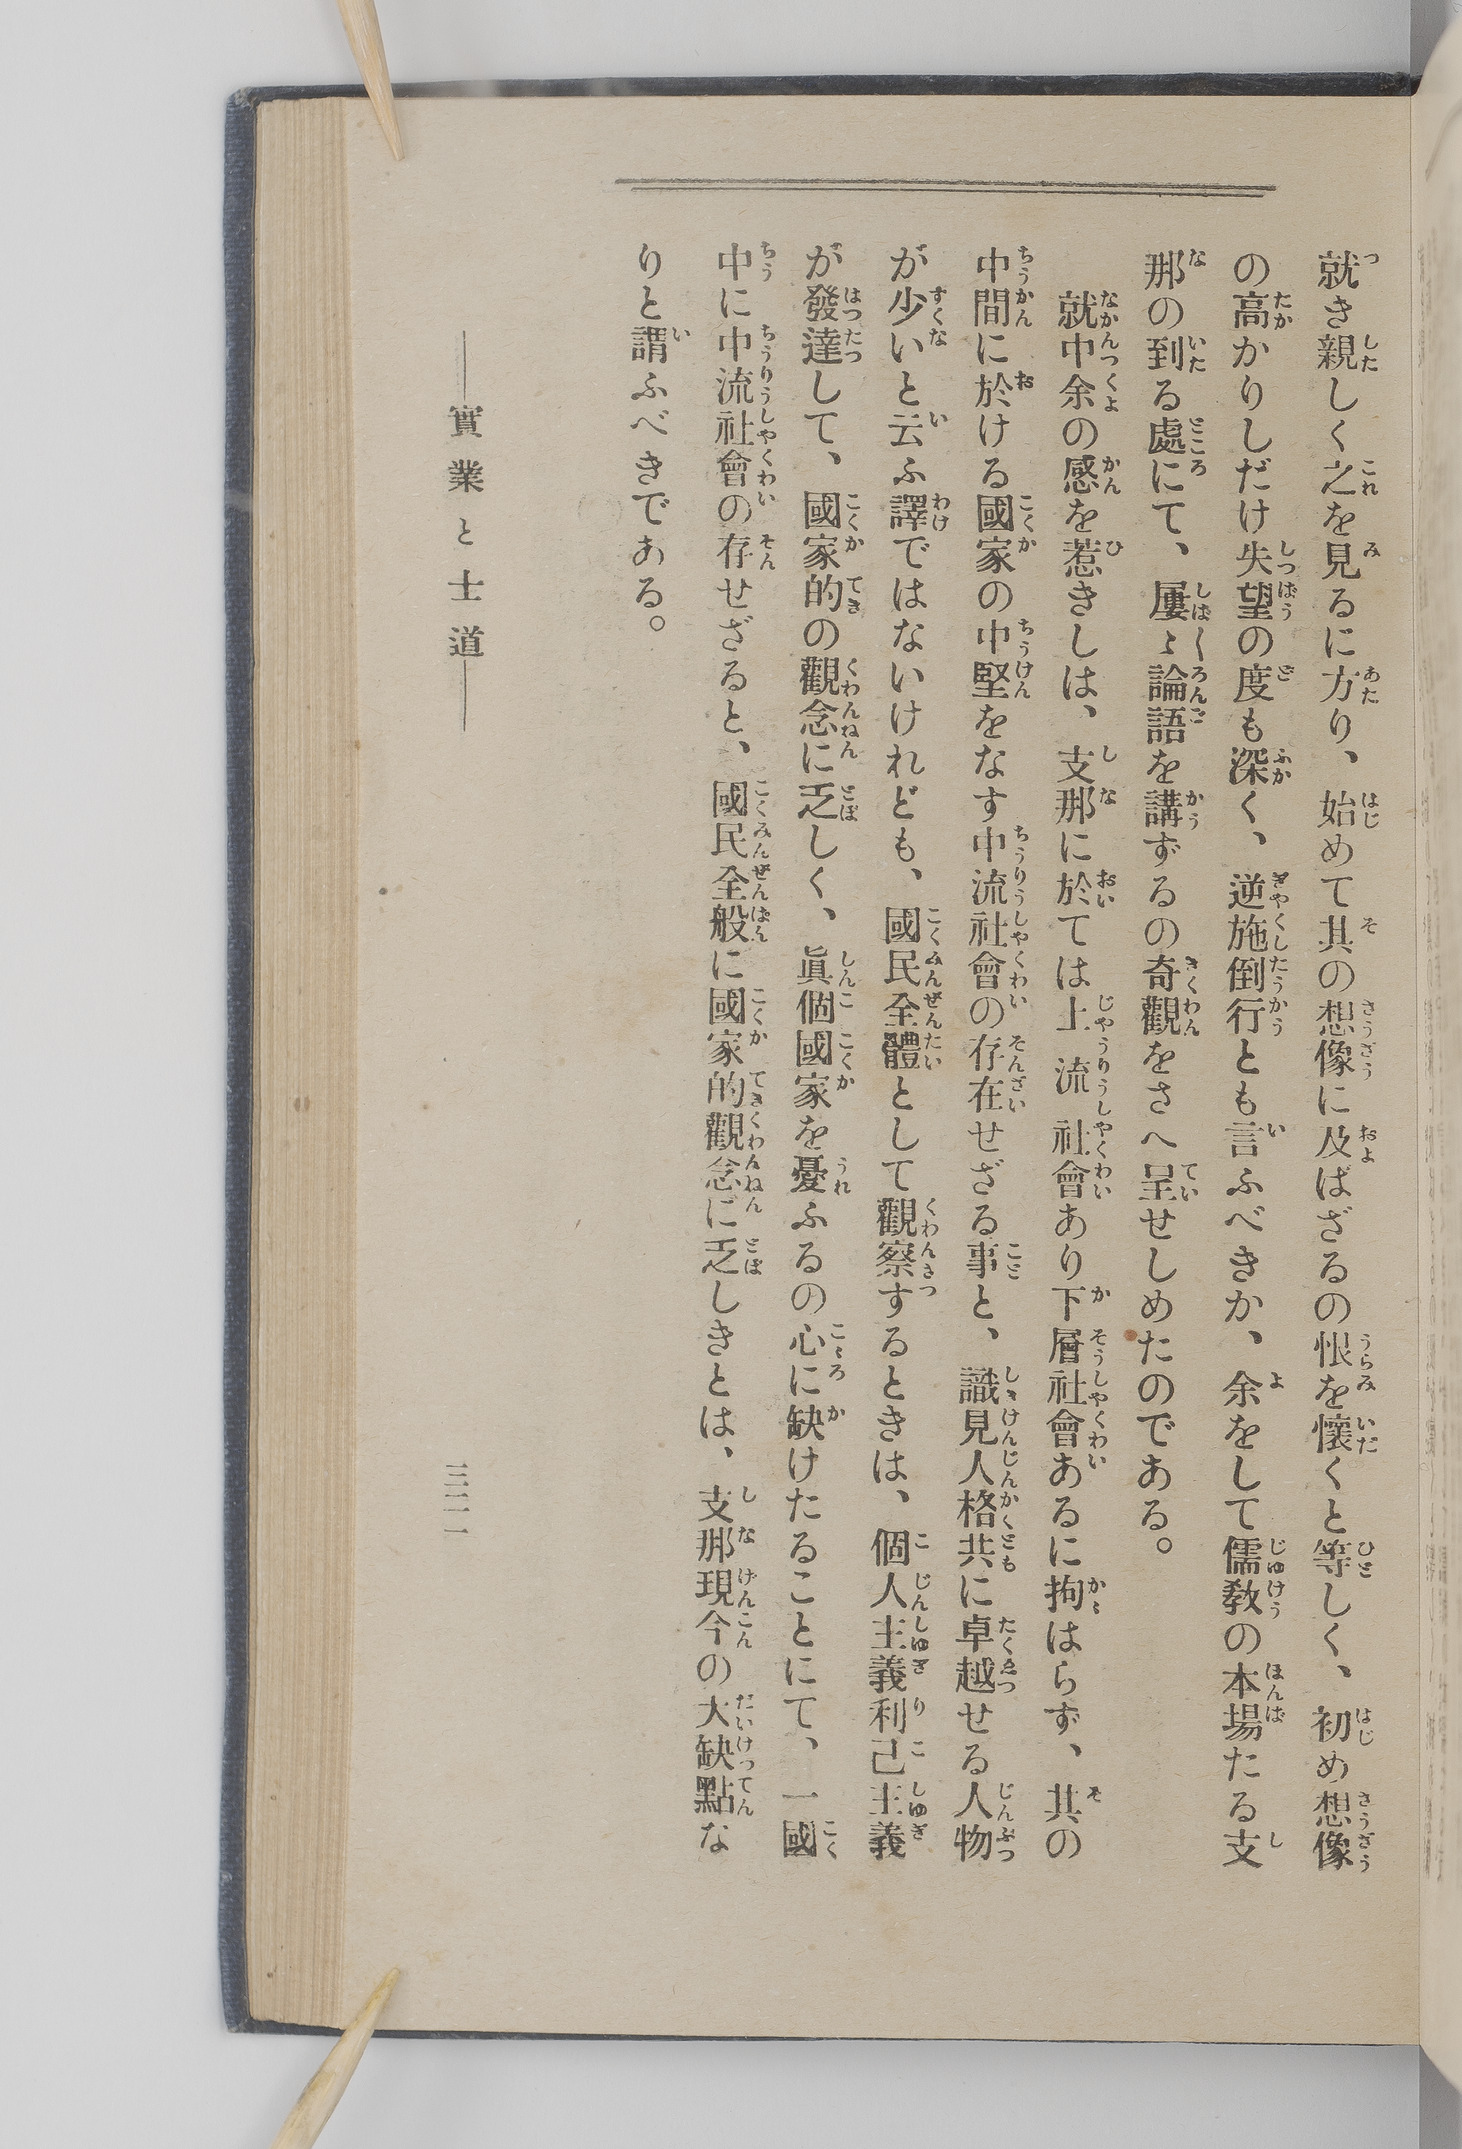 就き親しく之を見るに方り、始めて其の想像に及ばざるの恨を懷くと等しく、初め想像
の高かりしだけ失望の度も深く、逆施倒行とも言ふべきか、余をして儒教の本場たる支
那の到る處にて、屢〻論語を講ずるの奇觀をさへ呈せしめたのである。
就中余の感を惹きしは、支那に於ては上流社會あり下層社會あるに拘はらず、其の
中間に於ける國家の中堅をなす中流社會の存在せざる事と、識見人格共に卓越せる人物
が少いと云ふ譯ではないけれども、國民全體として觀察するときは、個人主義利己主義
が發達して、國家的の觀念に乏しく、眞個國家を憂ふるの心に缺けたることにて、一國
中に中流社會の存せざると、國民全般に國家的觀念に乏しきとは、支那現今の大缺點な
りと謂ふべきである。
實業と士道
三二一